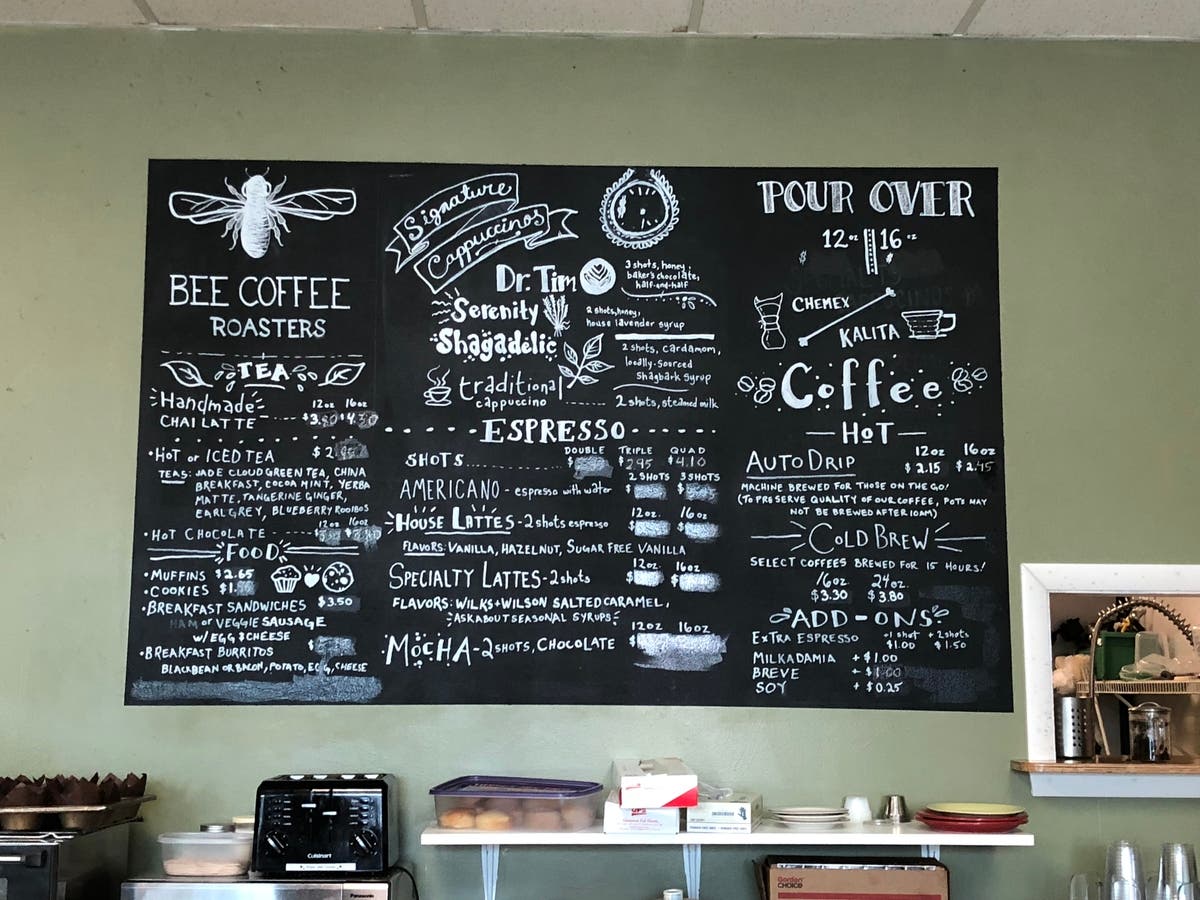 BEE COFFEE
ROASTERS
TEA
Handmade 12oz 16oz
CHAI LATTE
• HOT or ICED TEA $2
TEAS: JADE CLOUD GREEN TEA, CHINA
BREAKFAST, COCOA MINT, YERBA
MATTE, TANGERINE GINGER,
EARL GREY, BLUEBERRY ROOIBOS
• HOT CHOCOLATE 12oz 16oz
FOOD
• MUFFINS $2.65
• COOKIES $1.
• BREAKFAST SANDWICHES $3.50
HAM or VEGGIE SAUSAGE
w/ EGG & CHEESE
• BREAKFAST BURRITOS $
BLACKBEAN OR BACON, POTATO, EGG, CHEESE
Signature
Cappuccinos
$
Dr. Tim
3 shots, honey,
baker's chocolate,
half-and-half
Serenity
2 shots, honey,
house lavender syrup
Shagadelic
2 shots, cardamom,
locally-sourced
Shagbark syrup
traditional
cappuccino 2 shots, steamed milk
ESPRESSO
DOUBLE TRIPLE QUAD
SHOTS $ $2.95 $4.10
2 SHOTS 3 SHOTS
AMERICANO - espresso with water $ $
12oz. 16oz.
HOUSE LATTES - 2 shots espresso $ $
FLAVORS: VANILLA, HAZELNUT, SUGAR FREE VANILLA
12oz. 16oz.
SPECIALTY LATTES - 2 shots $ $
FLAVORS: WILKS + WILSON SALTED CARAMEL,
ASK ABOUT SEASONAL SYRUPS
12oz 16oz
MOCHA - 2 SHOTS, CHOCOLATE $
POUR OVER
12oz 16oz
$ $
CHEMEX
KALITA
Coffee
HOT
12oz 16oz
AUTO DRIP $2.15 $2.45
MACHINE BREWED FOR THOSE ON THE GO!
(TO PRESERVE QUALITY OF OUR COFFEE, POTS MAY
NOT BE BREWED AFTER 10AM)
COLD BREW
SELECT COFFEES BREWED FOR 15 HOURS!
16oz 24oz.
$3.30 $3.80
ADD-ONS
EXTRA ESPRESSO +1 shot +2 shots
$1.00 $1.50
MILKADAMIA + $1.00
BREVE + $1.00
SOY + $0.25
Cuisinart
Panasonic
Gordon
CHOICE